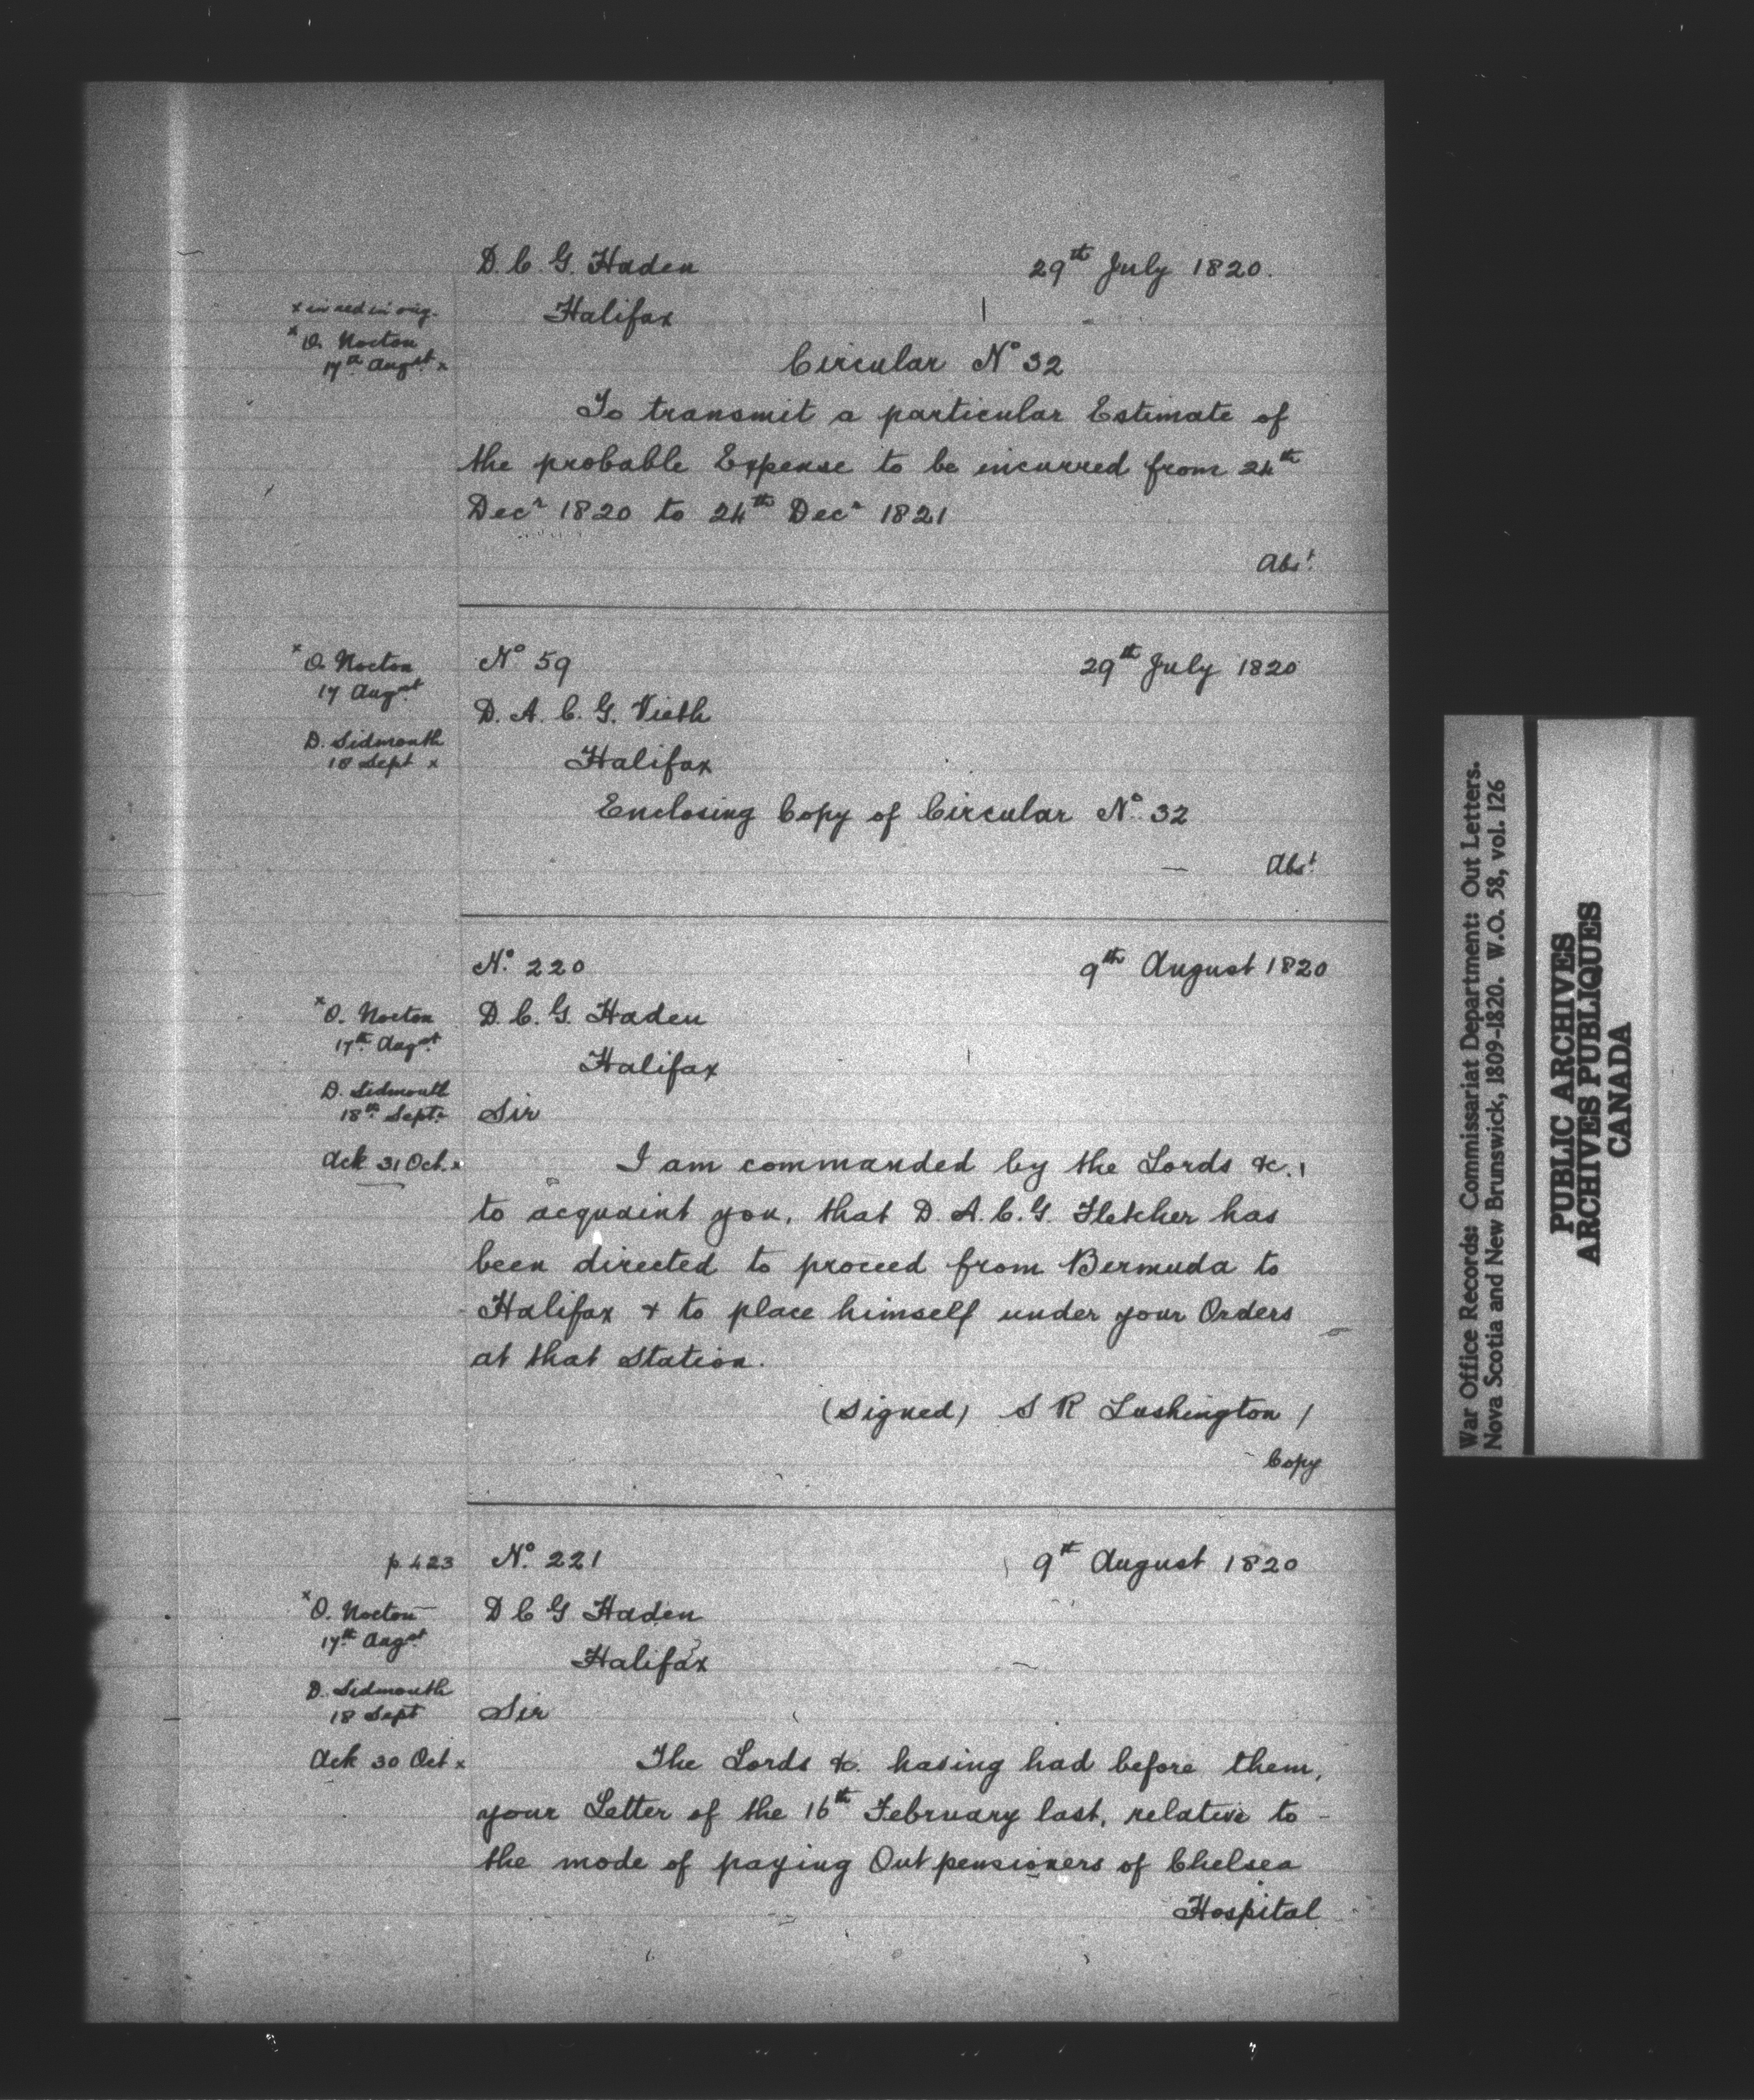 D. C. G. Haden 29th July 1820.
Halifax
x in red in orig.
x O. Nocton
17th Augst x
Circular No 32
To transmit a particular Estimate of
the probable Expense to be incurred from 24th
Decr 1820 to 24th Decr 1821
Abst.
x O. Nocton
17 Augst
D. Sidmouth
18 Sept x
No 59 29th July 1820
D. A. C. G. Vieth
Halifax
Enclosing Copy of Circular No. 32
Abst.
No. 220 9th August 1820
x O. Nocton
17th Augst
D. Sidmouth
18th Sept.
Ack 31 Oct. x
D. C. G. Haden
Halifax
Sir
I am commanded by the Lords &c.
to acquaint you, that D. A. C. G. Fletcher has
been directed to proceed from Bermuda to
Halifax + to place himself under your Orders
at that Station.
(Signed) S R Lushington /
Copy
p. 423 No. 221 9th August 1820
x O. Nocton
17th Augst
D. Sidmouth
18 Sept
Ack 30 Oct x
D C G Haden
Halifax
Sir
The Lords &c. having had before them,
your Letter of the 16th February last, relative to
the mode of paying Out pensioners of Chelsea
Hospital
War Office Records: Commissariat Department: Out Letters.
Nova Scotia and New Brunswick, 1809-1820. W.O. 58, vol. 126
PUBLIC ARCHIVES
ARCHIVES PUBLIQUES
CANADA